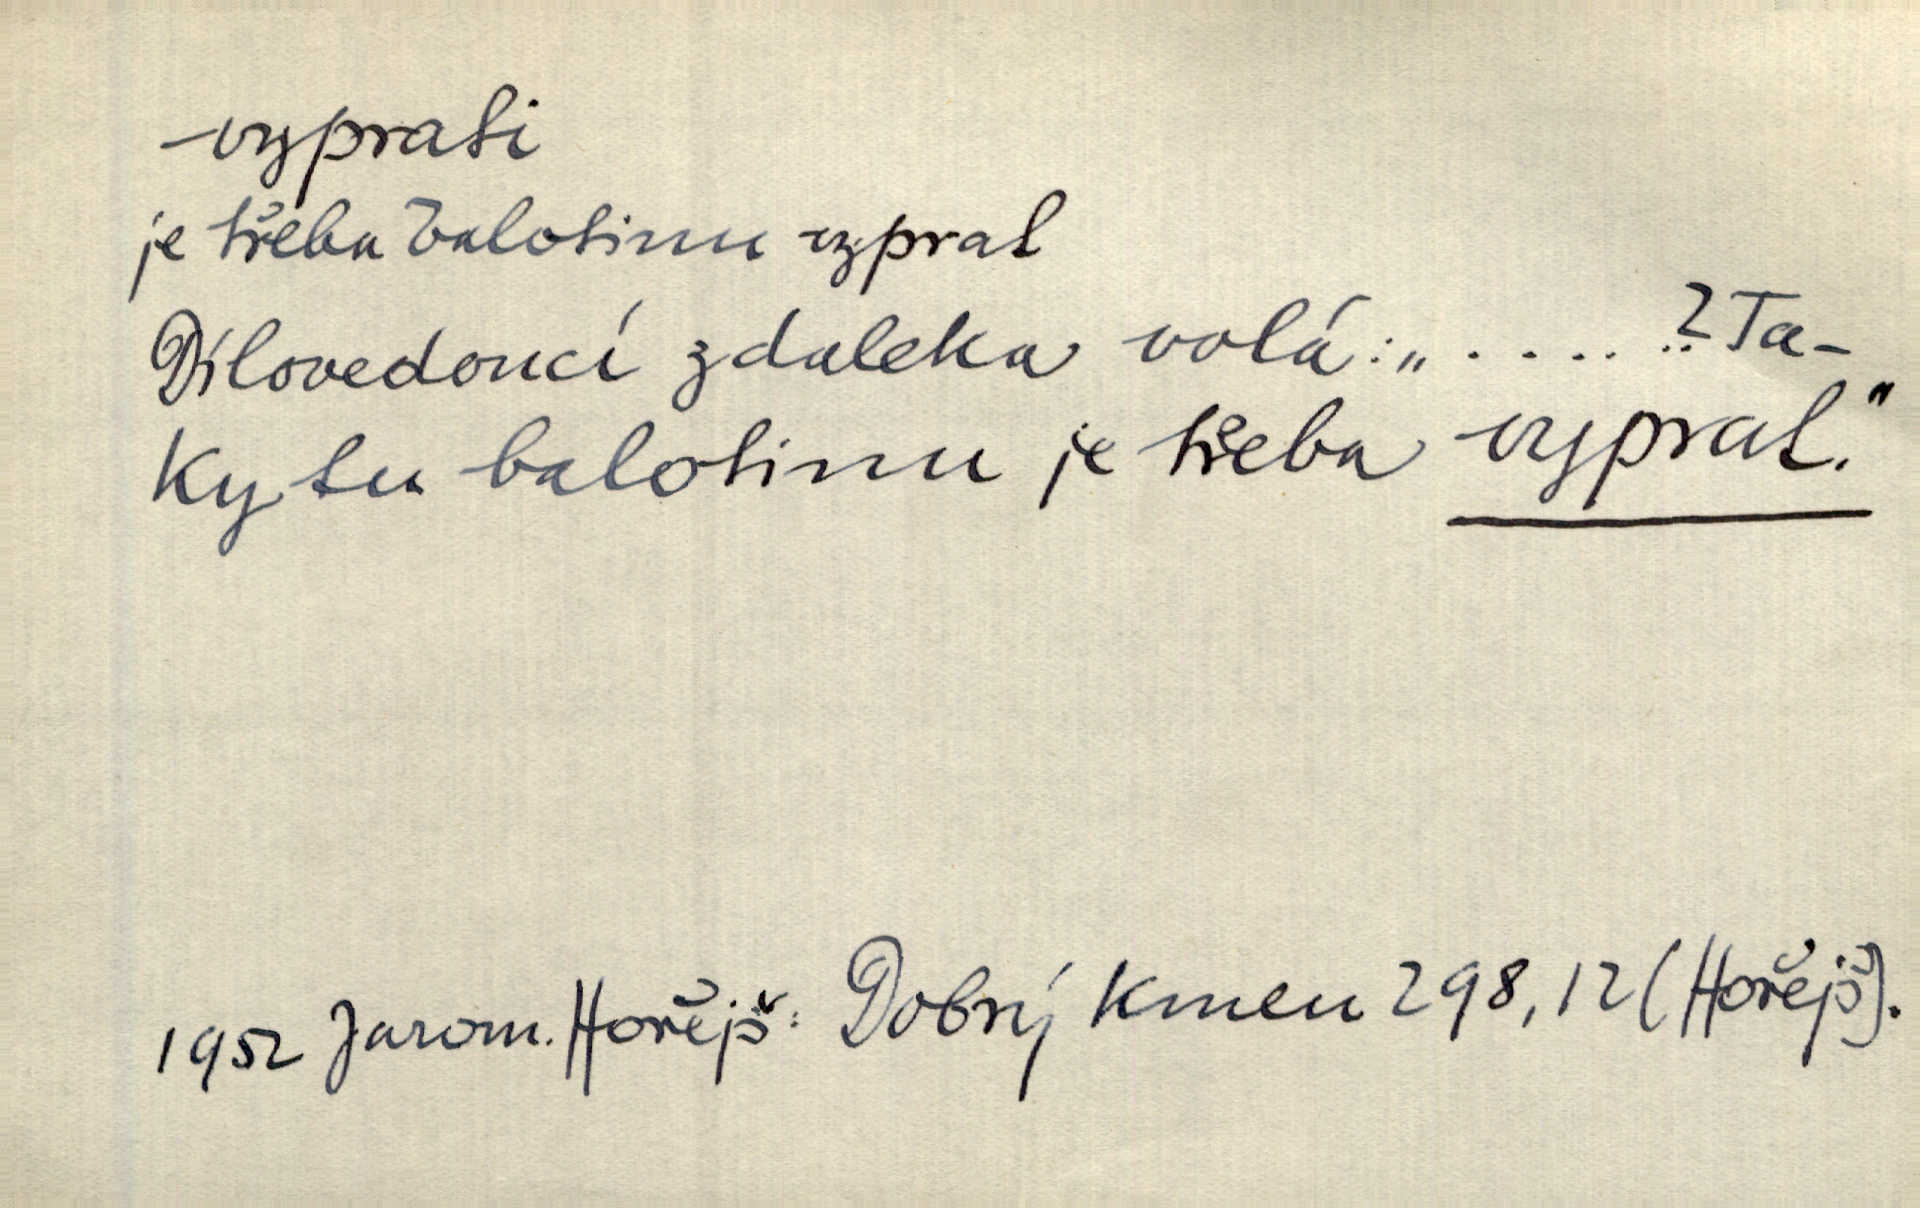 vyprati
je třeba balotinu vyprat
Dílovedoucí zdaleka volá: „.......? Ta-
ky tu balotinu je třeba vyprat."
1952 Jarom. Hořejš: Dobrý kmen 298, 12 (Hořejš).